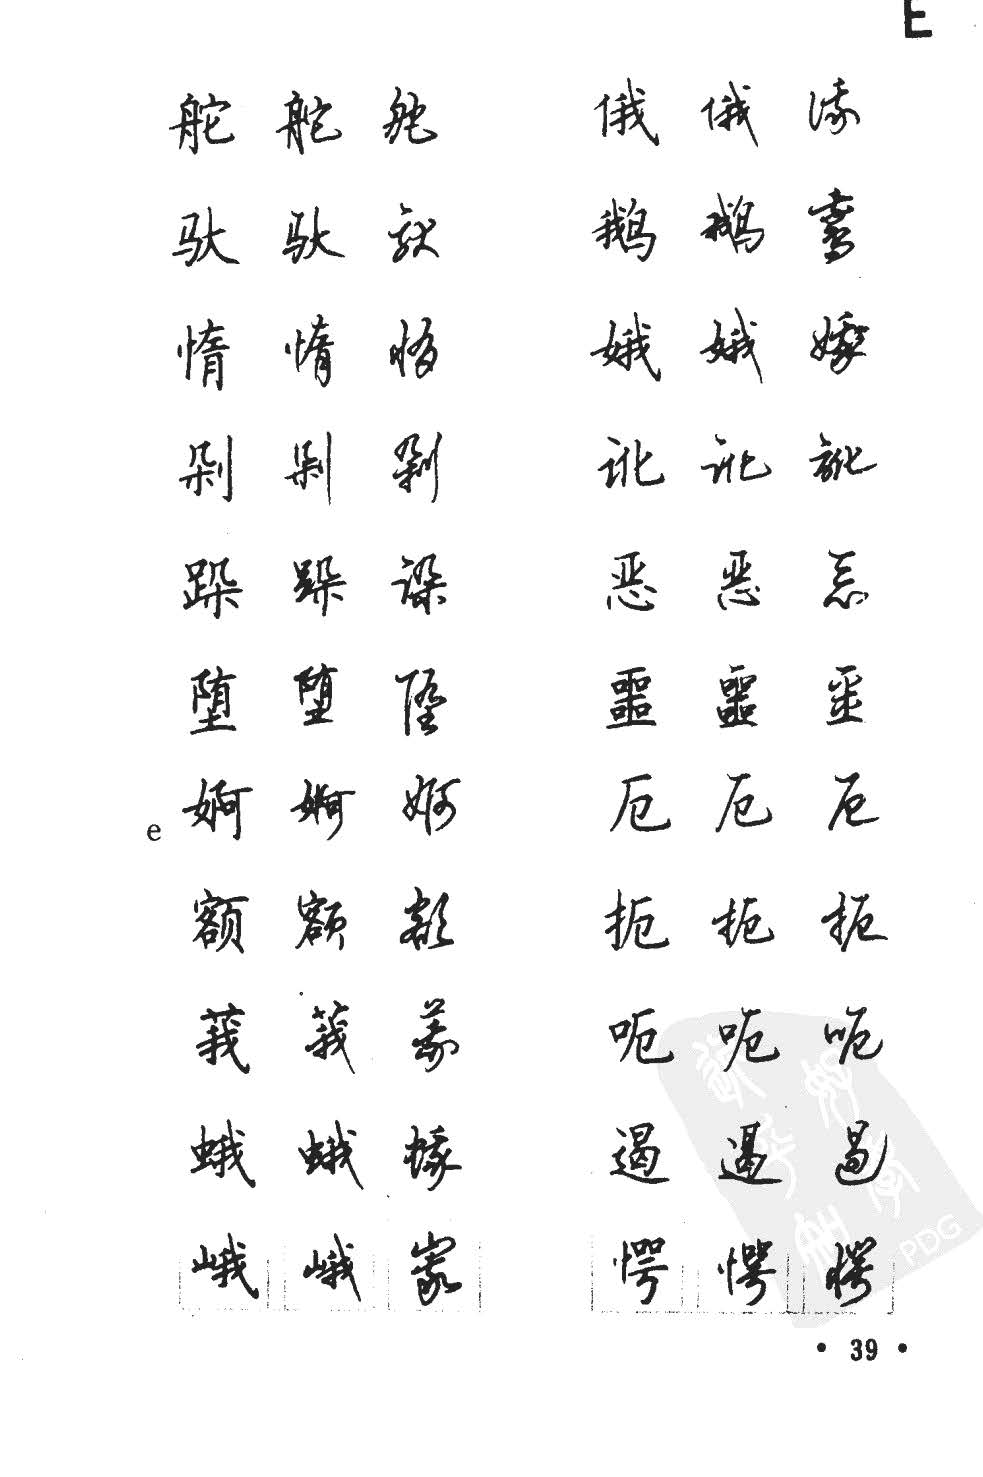 E
舵 舵 舵
驮 驮 驮
惰 惰 惰
剁 剁 剁
跺 跺 跺
堕 堕 堕
e 婀 婀 婀
额 额 额
莪 莪 莪
蛾 蛾 蛾
峨 峨 峨
俄 俄 俄
鹅 鹅 鹅
娥 娥 娥
讹 讹 讹
恶 恶 恶
噩 噩 噩
厄 厄 厄
扼 扼 扼
呃 呃 呃
遏 遏 遏
愕 愕 愕
PDG
• 39 •